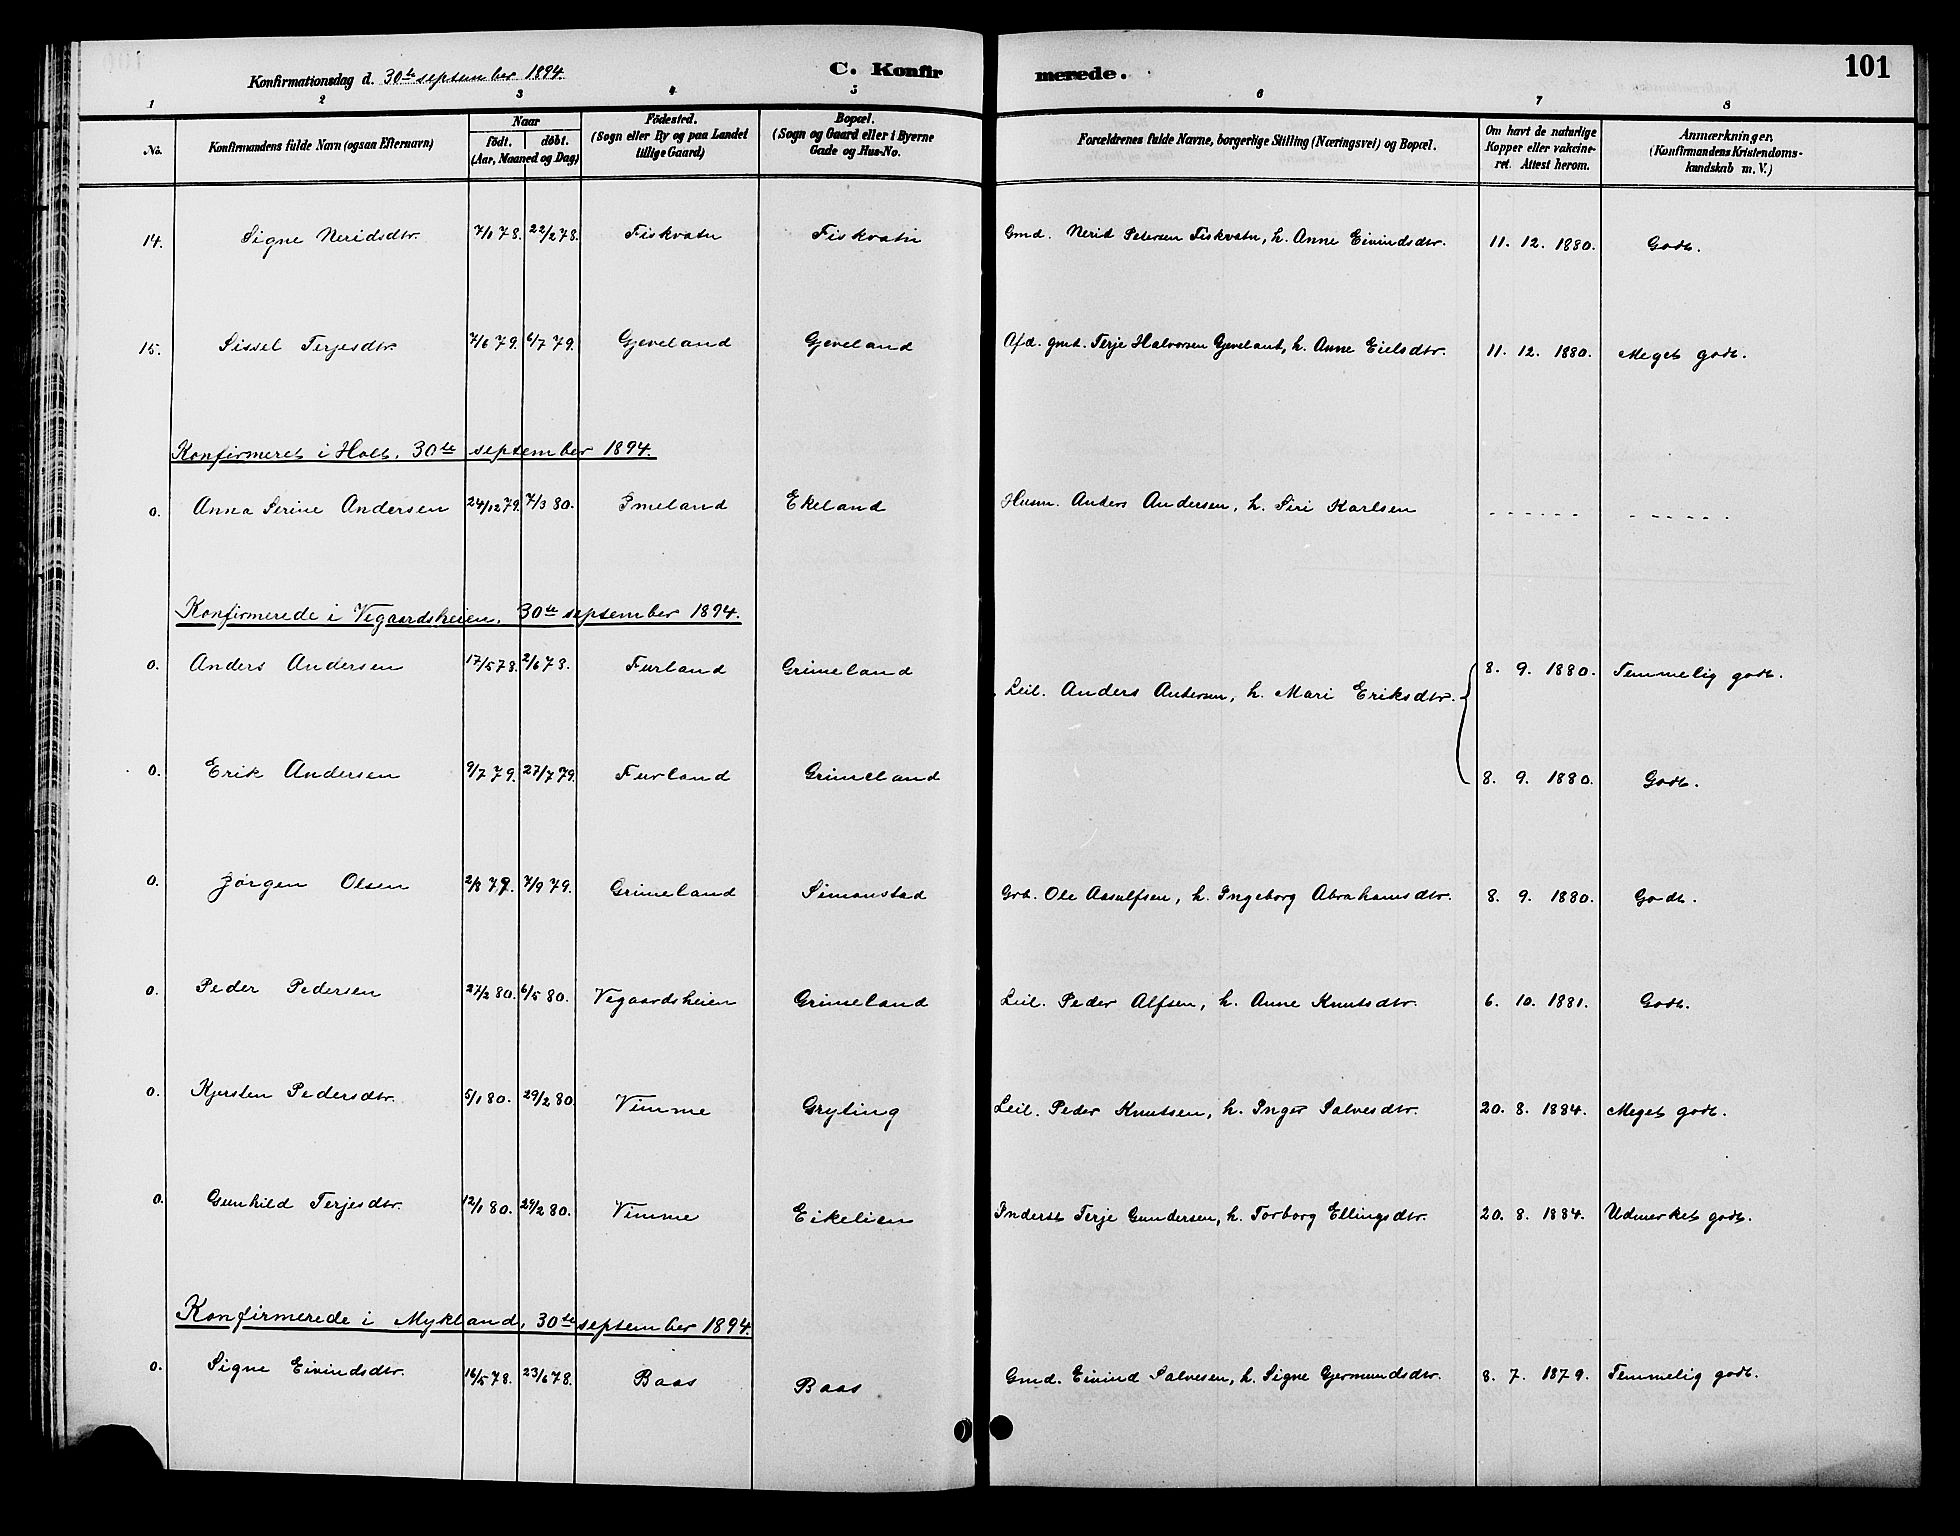 Konfirmationsdag d. 30te september 1894.
C. Konfirmerede.
101
1 2 3 4 5 6 7 8
No.
Konfirmandens fulde Navn (ogsaa Efternavn)
Naar
födt. döbt.
(Aar, Maaned og Dag)
Födested.
(Sogn eller By og paa Landet
tillige Gaard)
Bopæl.
(Sogn og Gaard eller i Byerne
Gade og Hus-No.
Forældrenes fulde Navne, borgerlige Stilling (Næringsvei) og Bopæl.
Om havt de naturlige
Kopper eller vakcine-
ret. Attest herom.
Anmærkninger,
(Konfirmandens Kristendoms-
kundskab m. V.)
14. Signe Neridsdtr. 7/1 78. 22/2 78. Fiskvatn Fiskvatn Gmd. Nerid Petersen Fiskvatn, h. Anne Eivindsdtr. 11. 12. 1880. Godt.
15. Sissel Terjesdtr. 7/6 79. 6/7 79. Gjeveland Gjeveland Afd. gmd. Terje Halvorsen Gjeveland, h. Anne Eielsdtr. 11. 12. 1880. Meget godt.
Konfirmeret i Holt. 30te september 1894.
0. Anna Serine Andersen 24/12 79. 7/3 80. Imeland Ekeland Husm. Anders Andersen, h. Siri Karlsen - - - - - - - - - - - -
Konfirmerede i Vegaardsheien. 30te september 1894.
0. Anders Andersen 17/5 78. 2/6 78. Furland Grimeland Leil. Anders Andersen, h. Mari Eriksdtr. 8. 9. 1880. Temmelig godt.
0. Erik Andersen 9/7 79. 27/7 79. Furland Grimeland 8. 9. 1880. Godt.
0. Jörgen Olsen 2/8 79. 7/9 79. Grimeland Simonstad Grb. Ole Aasulfsen, h. Ingeborg Abrahamsdtr. 8. 9. 1880. Godt.
0. Peder Pedersen 27/2 80. 6/5 80. Vegaardsheien Grimeland Leil. Peder Alfsen, h. Anne Knutsdtr. 6. 10. 1881. Godt.
0. Kjersten Pedersdtr. 5/1 80. 29/2 80. Vimme Gryting Leil. Peder Knutsen, h. Inger Salvesdtr. 20. 8. 1884. Meget godt.
0. Gunhild Terjesdtr. 12/1 80. 29/2 80. Vimme Eikelien Inderst Terje Gundersen, h. Torborg Ellingsdtr. 20. 8. 1884. Udmerket godt.
Konfirmerede i Mykland, 30te september 1894.
0. Signe Eivindsdtr. 16/5 78. 23/6 78. Baas Baas Gmd. Eivind Salvesen, h. Signe Gjermundsdtr. 8. 7. 1879. Temmelig godt.